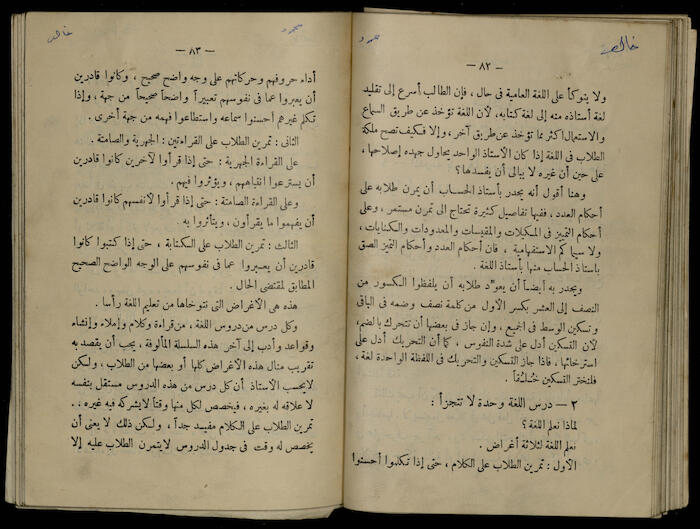 خالص
محمود
— ٨٢ —
ولا يتوكأ على اللغة العامية فى حال ، فإن الطالب أسرع إلى تقليد
لغة أستاذه منه إلى لغة كتابه، لأن اللغة تؤخذ عن طريق السماع
والاستعمال اكثر مما تؤخذ عن طريق آخر، وإلا فكيف تصح ملكة
الطلاب فى اللغة إذا كان الأستاذ الواحد يحاول جهده إصلاحها ،
على حين أن غيره لا يبالى أن يفسدها ؟
وهنا أقول أنه يجدر بأستاذ الحساب أن يمرن طلابه على
أحكام العدد، ففيها تفاصيل كثيرة تحتاج الى تمرن مستمر ، وعلى
أحكام التمييز فى المكيلات والمقيسات والمعدودات والكنايات ،
ولا سيما كم الاستفهامية ، فان أحكام العدد وأحكام التمييز الصق
باستاذ الحساب منها بأستاذ اللغة .
ويجدر به أيضاً أن يعوّد طلابه أن يلفظوا الكسور من
النصف إلى العشر بكسر الأول من كلمة نصف وضمه فى الباقى
وتسكين الوسط فى الجميع ، وإن جاز فى بعضها أن تتحرك بالضم،
فإن التسكين أدل على شدة النفوس ، كما أن التحريك أدل على
استرخائها ، فاذا جاز التسكين والتحريك فى اللفظة الواحدة لغة ،
فلنختر التسكين خُلُقاً .
٢ — درس اللغة وحدة لا تتجزأ :
لماذا نعلم اللغة ؟
نعلم اللغة لثلاثة أغراض .
الأول : تمرين الطلاب على الكلام ، حتى إذا تكلموا أحسنوا
محمود
— ٨٣ —
أداء حروفهم وحركاتهم على وجه واضح صحيح ، وكانوا قادرين
أن يعبروا عما فى نفوسهم تعبيراً واضحاً صحيحاً من جهة ، وإذا
تكلم غيرهم أحسنوا سماعه واستطاعوا فهمه من جهة أخرى .
الثانى : تمرين الطلاب على القراءتين : الجهرية والصامتة .
على القراءة الجهرية : حتى إذا قرأوا لآخرين كانوا قادرين
أن يسترعوا انتباههم ، ويؤثروا فيهم .
وعلى القراءة الصامتة : حتى إذا قرأوا لأنفسهم كانوا قادرين
أن يفهموا ما يقرأون ، ويتأثروا به .
الثالث : تمرين الطلاب على الكتابة ، حتى إذا كتبوا كانوا
قادرين أن يعبروا عما فى نفوسهم على الوجه الواضح الصحيح
المطابق لمقتضى الحال .
هذه هى الأغراض التى نتوخاها من تعليم اللغة رأساً .
وكل درس من دروس اللغة ، من قراءة وكلام وإملاء وإنشاء
وقواعد وأدب إلى آخر هذه السلسلة المألوفة ، يجب أن يقصد به
تقريب منال هذه الأغراض كلها أو بعضها من الطلاب ، ولكن
لا يحسب الأستاذ أن كل درس من هذه الدروس مستقل بنفسه
لا علاقة له بغيره ، فيخصص لكل منها وقتاً لايشركه فيه غيره ، .
تمرين الطلاب على الكلام مفيد جداً ، ولكن ذلك لا يعنى أن
يخصص له وقت فى جدول الدروس لايتمرن الطلاب عليه إلا